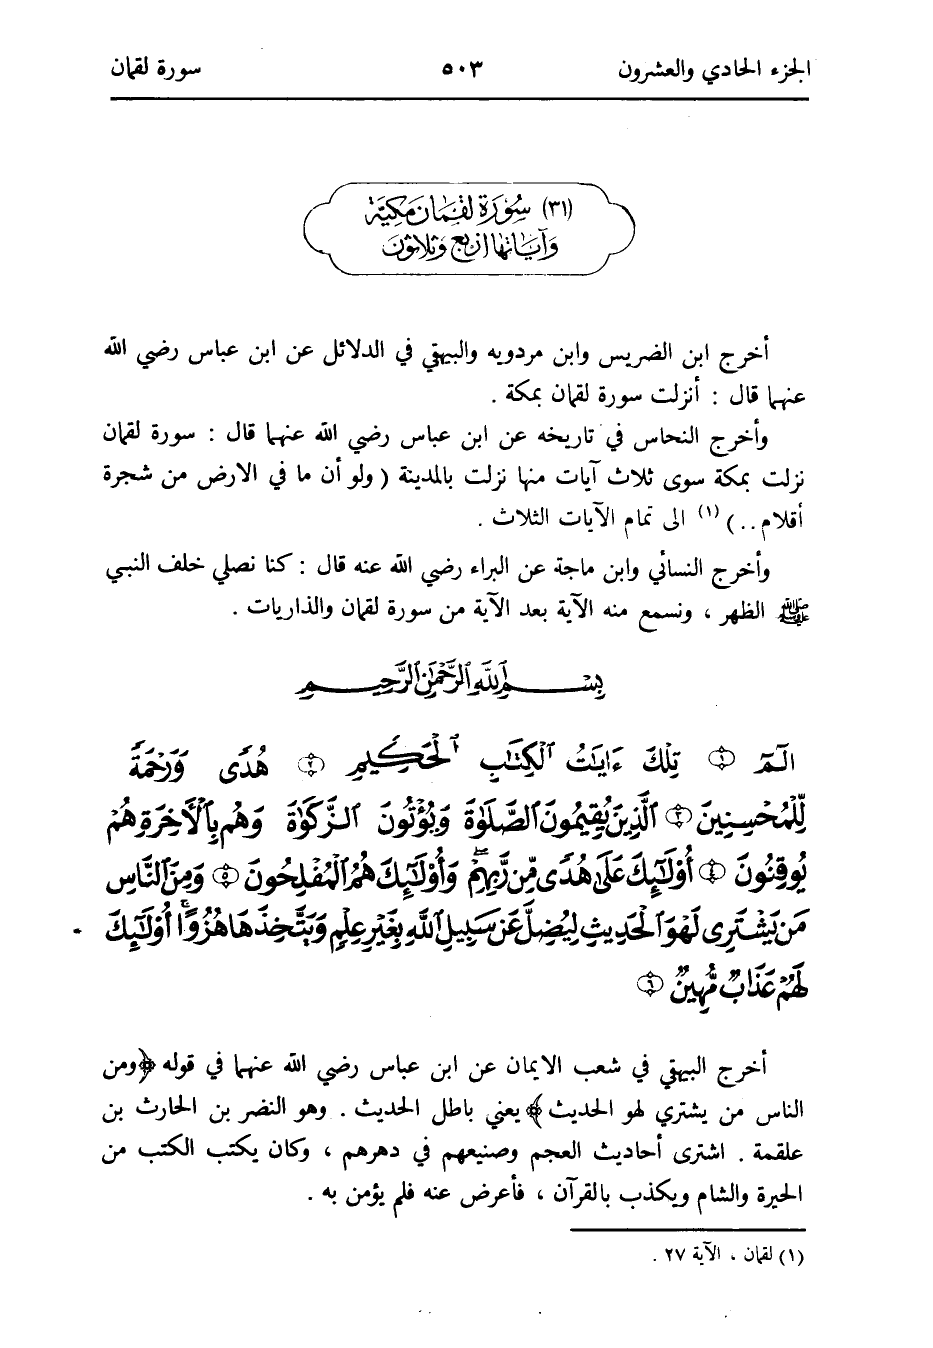 الجزء الحادي والعشرون ٥٠٣ سورة لقمان
(٣١) سُورَة لقمَان مَكيَّة
وَآيَاتهَا أربَع وَثلاثونَ
أخرج ابن الضريس وابن مردويه والبيهقي في الدلائل عن ابن عباس رضي الله
عنهما قال : أنزلت سورة لقمان بمكة .
وأخرج النحاس في تاريخه عن ابن عباس رضي الله عنهما قال : سورة لقمان
نزلت بمكة سوى ثلاث آيات منها نزلت بالمدينة ( ولو أن ما في الارض من شجرة
أقلام . . ) (١) الى تمام الآيات الثلاث .
وأخرج النسائي وابن ماجة عن البراء رضي الله عنه قال : كنا نصلي خلف النبي
ﷺ الظهر ، ونسمع منه الآية بعد الآية من سورة لقمان والذاريات .
بِسْمِ ٱللَّهِ ٱلرَّحْمَٰنِ ٱلرَّحِيمِ
الٓمٓ ۝١ تِلْكَ ءَايَٰتُ ٱلْكِتَٰبِ ٱلْحَكِيمِ ۝٢ هُدًى وَرَحْمَةً
لِّلْمُحْسِنِينَ ۝٣ ٱلَّذِينَ يُقِيمُونَ ٱلصَّلَوٰةَ وَيُؤْتُونَ ٱلزَّكَوٰةَ وَهُم بِٱلْأَخِرَةِ هُمْ
يُوقِنُونَ ۝٤ أُوْلَٰٓئِكَ عَلَىٰ هُدًى مِّن رَّبِّهِمْ ۖ وَأُوْلَٰٓئِكَ هُمُ ٱلْمُفْلِحُونَ ۝٥ وَمِنَ ٱلنَّاسِ
مَن يَشْتَرِى لَهْوَ ٱلْحَدِيثِ لِيُضِلَّ عَن سَبِيلِ ٱللَّهِ بِغَيْرِ عِلْمٍ وَيَتَّخِذَهَا هُزُوًا ۚ أُوْلَٰٓئِكَ
لَهُمْ عَذَابٌ مُّهِينٌ ۝٦
أخرج البيهقي في شعب الايمان عن ابن عباس رضي الله عنهما في قوله ﴿ومن
الناس من يشتري لهو الحديث﴾ يعني باطل الحديث . وهو النضر بن الحارث بن
علقمة . اشترى أحاديث العجم وصنيعهم في دهرهم ، وكان يكتب الكتب من
الحيرة والشام ويكذب بالقرآن ، فأعرض عنه فلم يؤمن به .
(١) لقمان ، الآية ٢٧ .